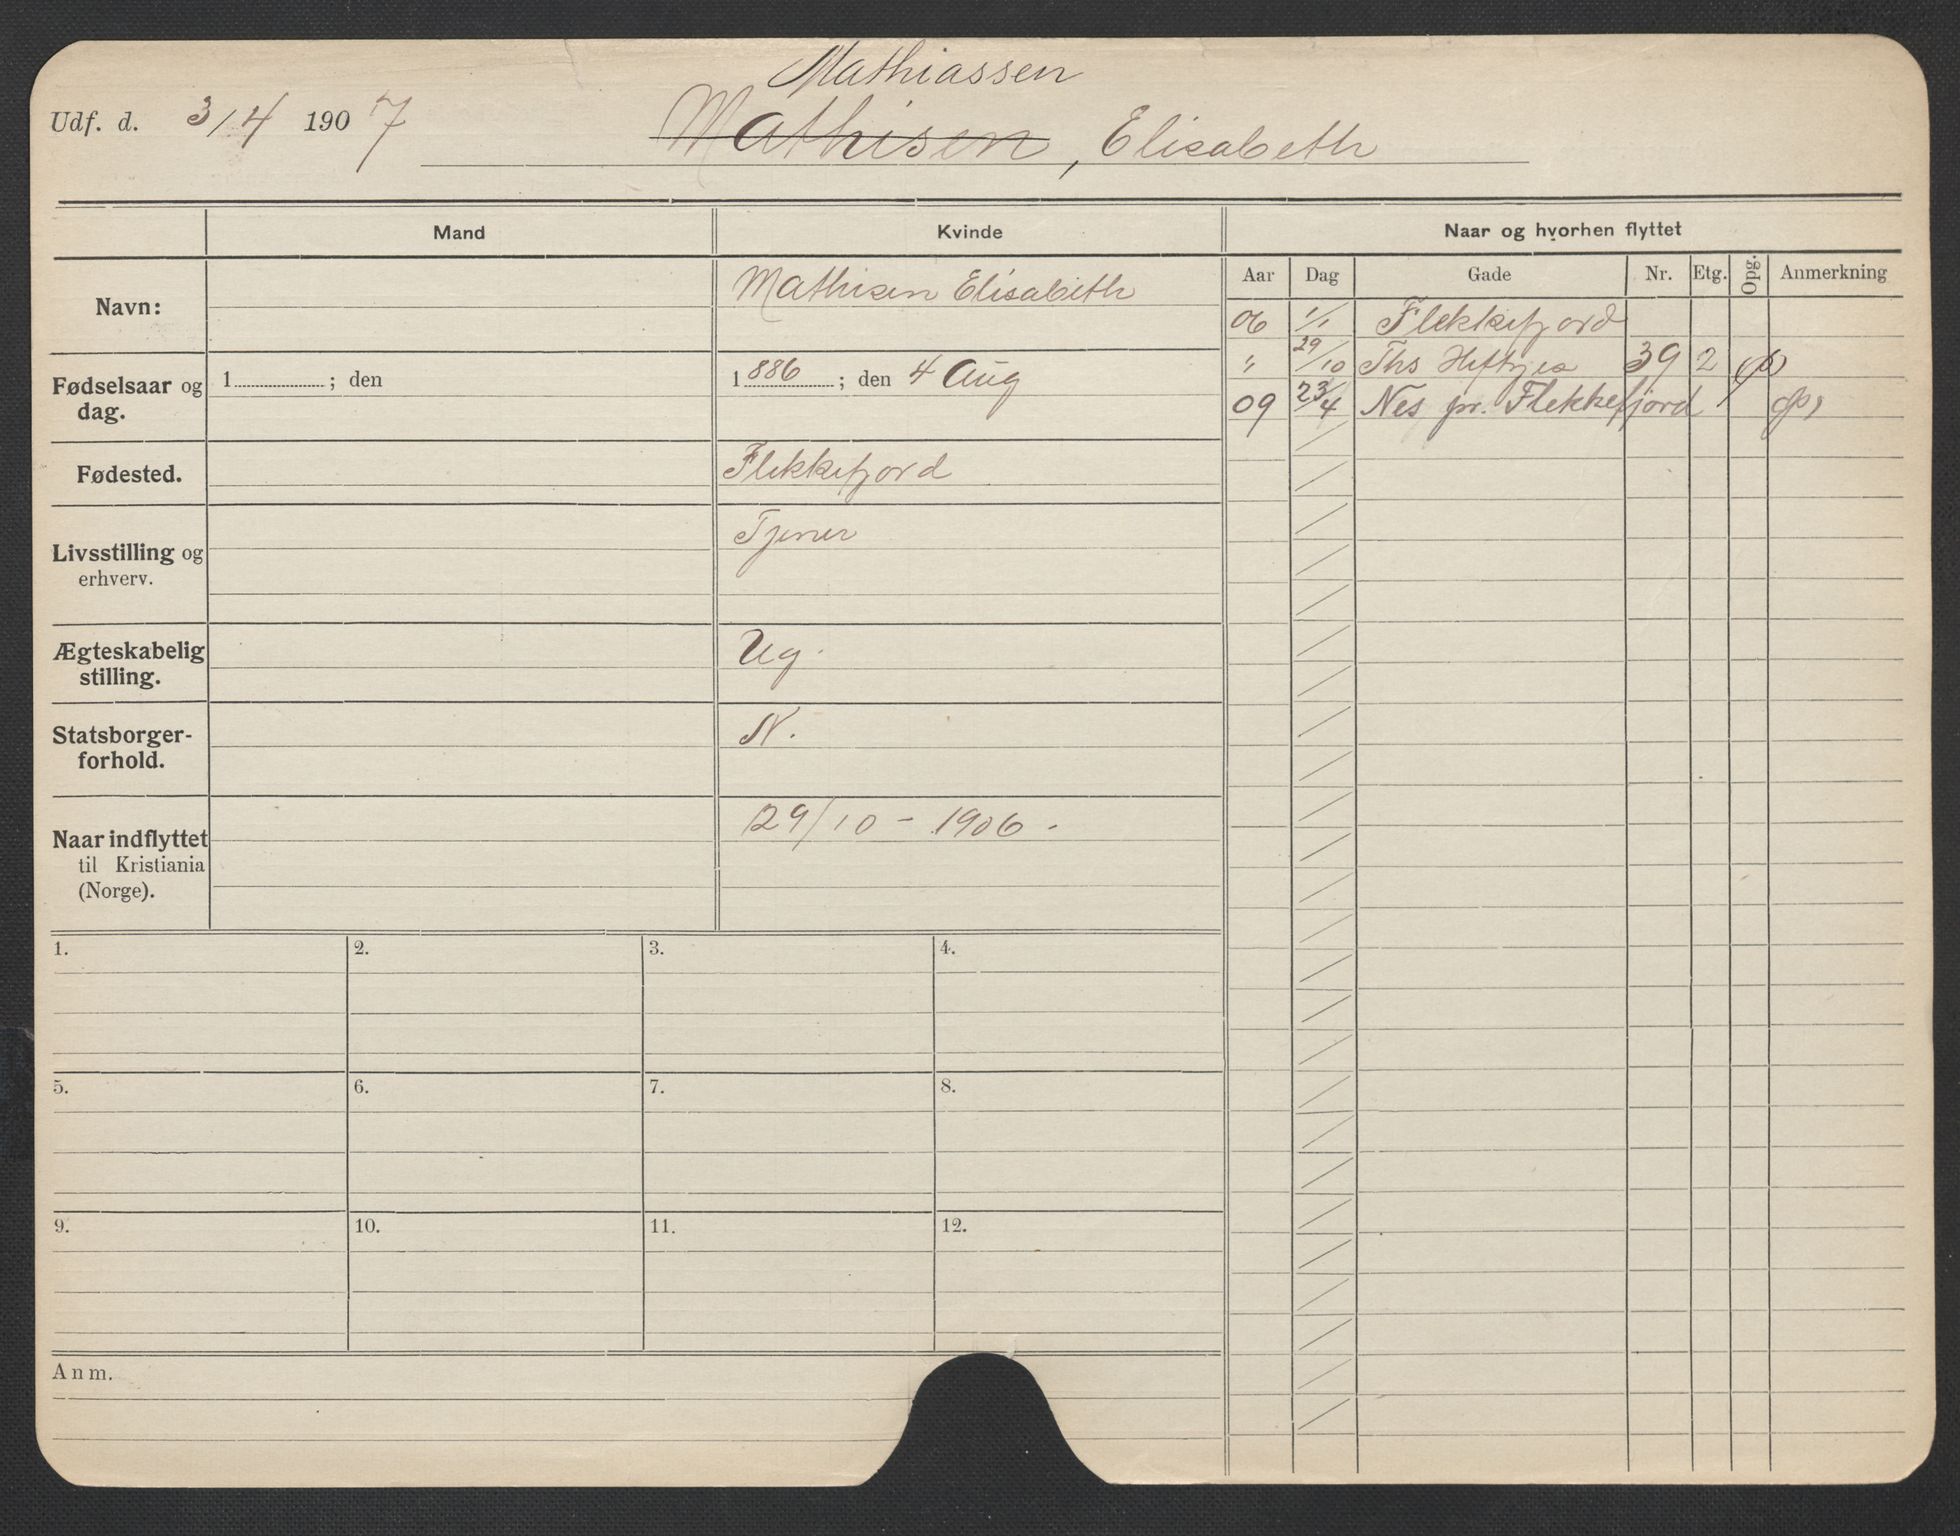 Mathiassen
Udf. d. 3/4 1907 Mathisen, Elisabeth
Mand Kvinde Naar og hvorhen flyttet
Aar Dag Gade Nr. Etg. Opg. Anmerkning
Navn: Mathisen Elisabeth
06 1/1 Flekkefjord
" 29/10 Ths Heftyes 39 2
09 23/4 Nes pr. Flekkefjord
Fødselsaar og dag. 1 ; den 1886 ; den 4 Aug
Fødested. Flekkefjord
Livsstilling og erhverv. Tjener
Ægteskabelig stilling. Ug.
Statsborger-
forhold. N.
Naar indflyttet 29/10 - 1906 -
til Kristiania
(Norge).
1. 2. 3. 4.
5. 6. 7. 8.
9. 10. 11. 12.
Anm.